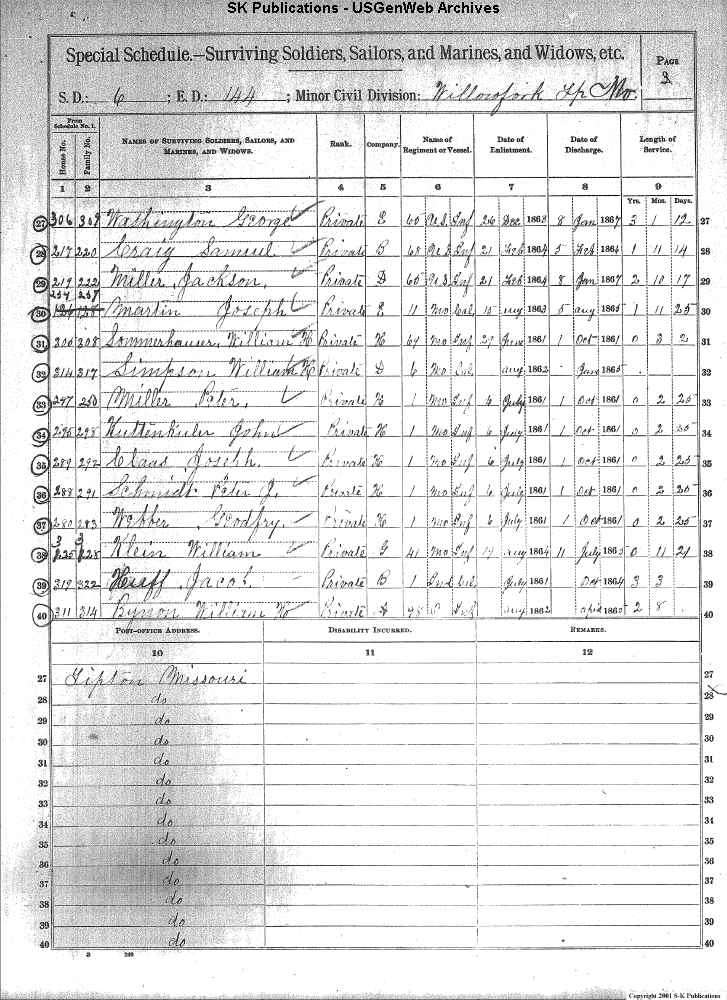 SK Publications - USGenWeb Archives
Special Schedule.—Surviving Soldiers, Sailors, and Marines, and Widows, etc.
PAGE 3
S. D.: 6 ; E. D.: 144 ; Minor Civil Division: Willowfork Tp Mo.
From Schedule No. 1.
House No. Family No. NAMES OF SURVIVING SOLDIERS, SAILORS, AND MARINES, AND WIDOWS. Rank. Company. Name of Regiment or Vessel. Date of Enlistment. Date of Discharge. Length of Service.
1 2 3 4 5 6 7 8 9
Yrs. Mos. Days.
27 306 309 Washington George Private E 60 U.S. Inf 26 Dec 1863 8 Jan 1867 3 1 12 27
28 217 220 Craig Samuel Private B 68 U.S. Inf 21 Feb 1864 5 Feb 1866 1 11 14 28
29 219 222 Miller Jackson, Private D 65 U.S. Inf 21 Feb 1864 8 Jan 1867 2 10 17 29
30 254 257 Martin Joseph Private E 11 Mo Cal 10 aug 1863 5 aug 1865 1 11 25 30
31 305 308 Sommerhauser, William H Private K 1 Mo Inf 29 June 1861 1 Oct 1861 0 3 2 31
32 314 317 Simpson William H Private D 6 Mo Cal aug 1862 June 1865 32
33 247 250 Miller Peter, Private K 1 Mo Inf 6 July 1861 1 Oct 1861 0 2 25 33
34 295 298 Kuttenkuler John Private K 1 Mo Inf 6 July 1861 1 Oct 1861 0 2 25 34
35 289 292 Claas Joseph. Private K 1 Mo Inf 6 July 1861 1 Oct 1861 0 2 25 35
36 288 291 Schmidt Peter J. Private K 1 Mo Inf 6 July 1861 1 Oct 1861 0 2 25 36
37 280 283 Webber Godfry. Private K 1 Mo Inf 6 July 1861 1 Oct 1861 0 2 25 37
38 325 328 Klein William Private G 41 Mo Inf 19 aug 1864 11 July 1865 0 11 21 38
39 319 322 Huff Jacob. Private B 1 Ind Cal July 1861 Oct 1864 3 3 39
40 311 314 Bynon William Private A 98 O Inf aug 1862 april 1865 2 8 40
POST-OFFICE ADDRESS. DISABILITY INCURRED. REMARKS.
10 11 12
27 Tipton Missouri 27
28 do 28
29 do 29
30 do 30
31 do 31
32 do 32
33 do 33
34 do 34
35 do 35
36 do 36
37 do 37
38 do 38
39 do 39
40 do 40
3 240
Copyright 2001 S-K Publications